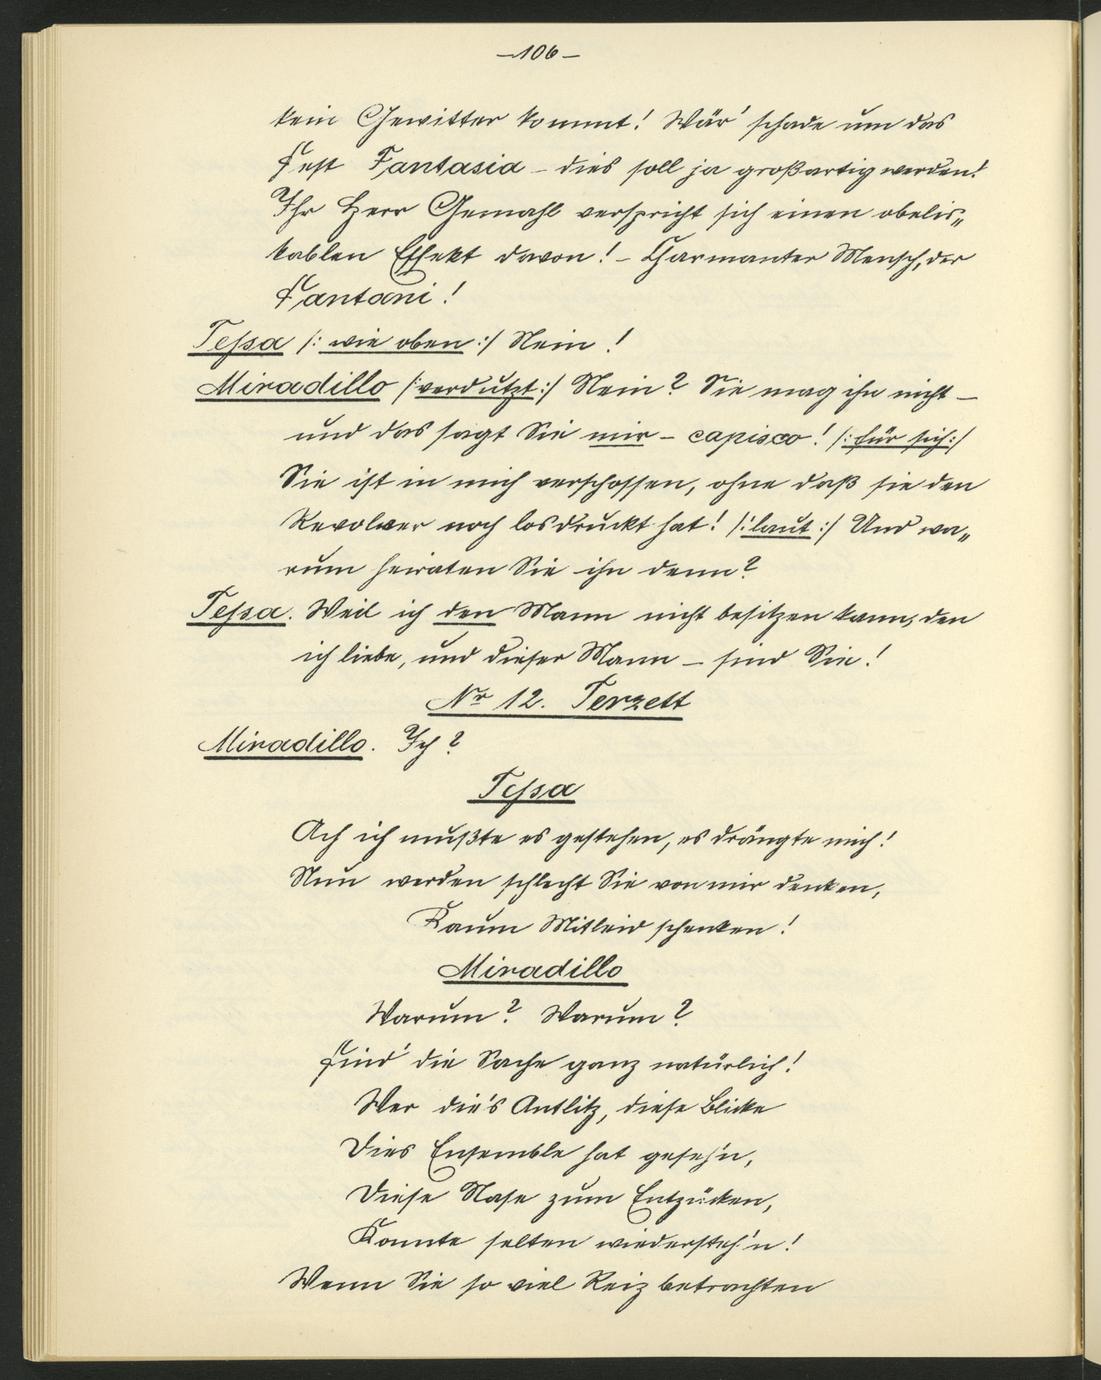 —106—
kein Gewitter kommt! Wär' schade um das
Fest Fantasia – dies soll ja großartig werden!
Ihr Herr Gemahl verspricht sich einen obelis„
kablen Effekt davon! – Charmanter Mensch, der
Fantoni!
Teſsa /: wie oben :/ Nein!
Miradillo /: verdutzt :/ Nein? Sie mag ihn nicht –
und das sagt Sie mir – capisco! /: für sich :/
Sie ist in mich verschossen, ohne daß sie den
Revolver noch losdruckt hat! /: laut :/ Und wa„
rum heiraten Sie ihn denn?
Teſsa. Weil ich den Mann nicht besitzen kann, den
ich liebe, und dieser Mann – sind Sie!
Nr 12. Terzett
Miradillo. Ich?
Teſsa
Ach ich mußte es gestehen, es drängte mich!
Nun werden schlecht Sie von mir denken,
Kaum Mitleid schenken!
Miradillo
Warum? Warum?
Find' die Sache ganz natürlich!
Wer dies Antlitz, diese Blicke
Dies Ensemble hat geseh'n,
Diese Nase zum Entzücken,
Konnte selten wiedersteh'n!
Wenn Sie so viel Reiz betrachten